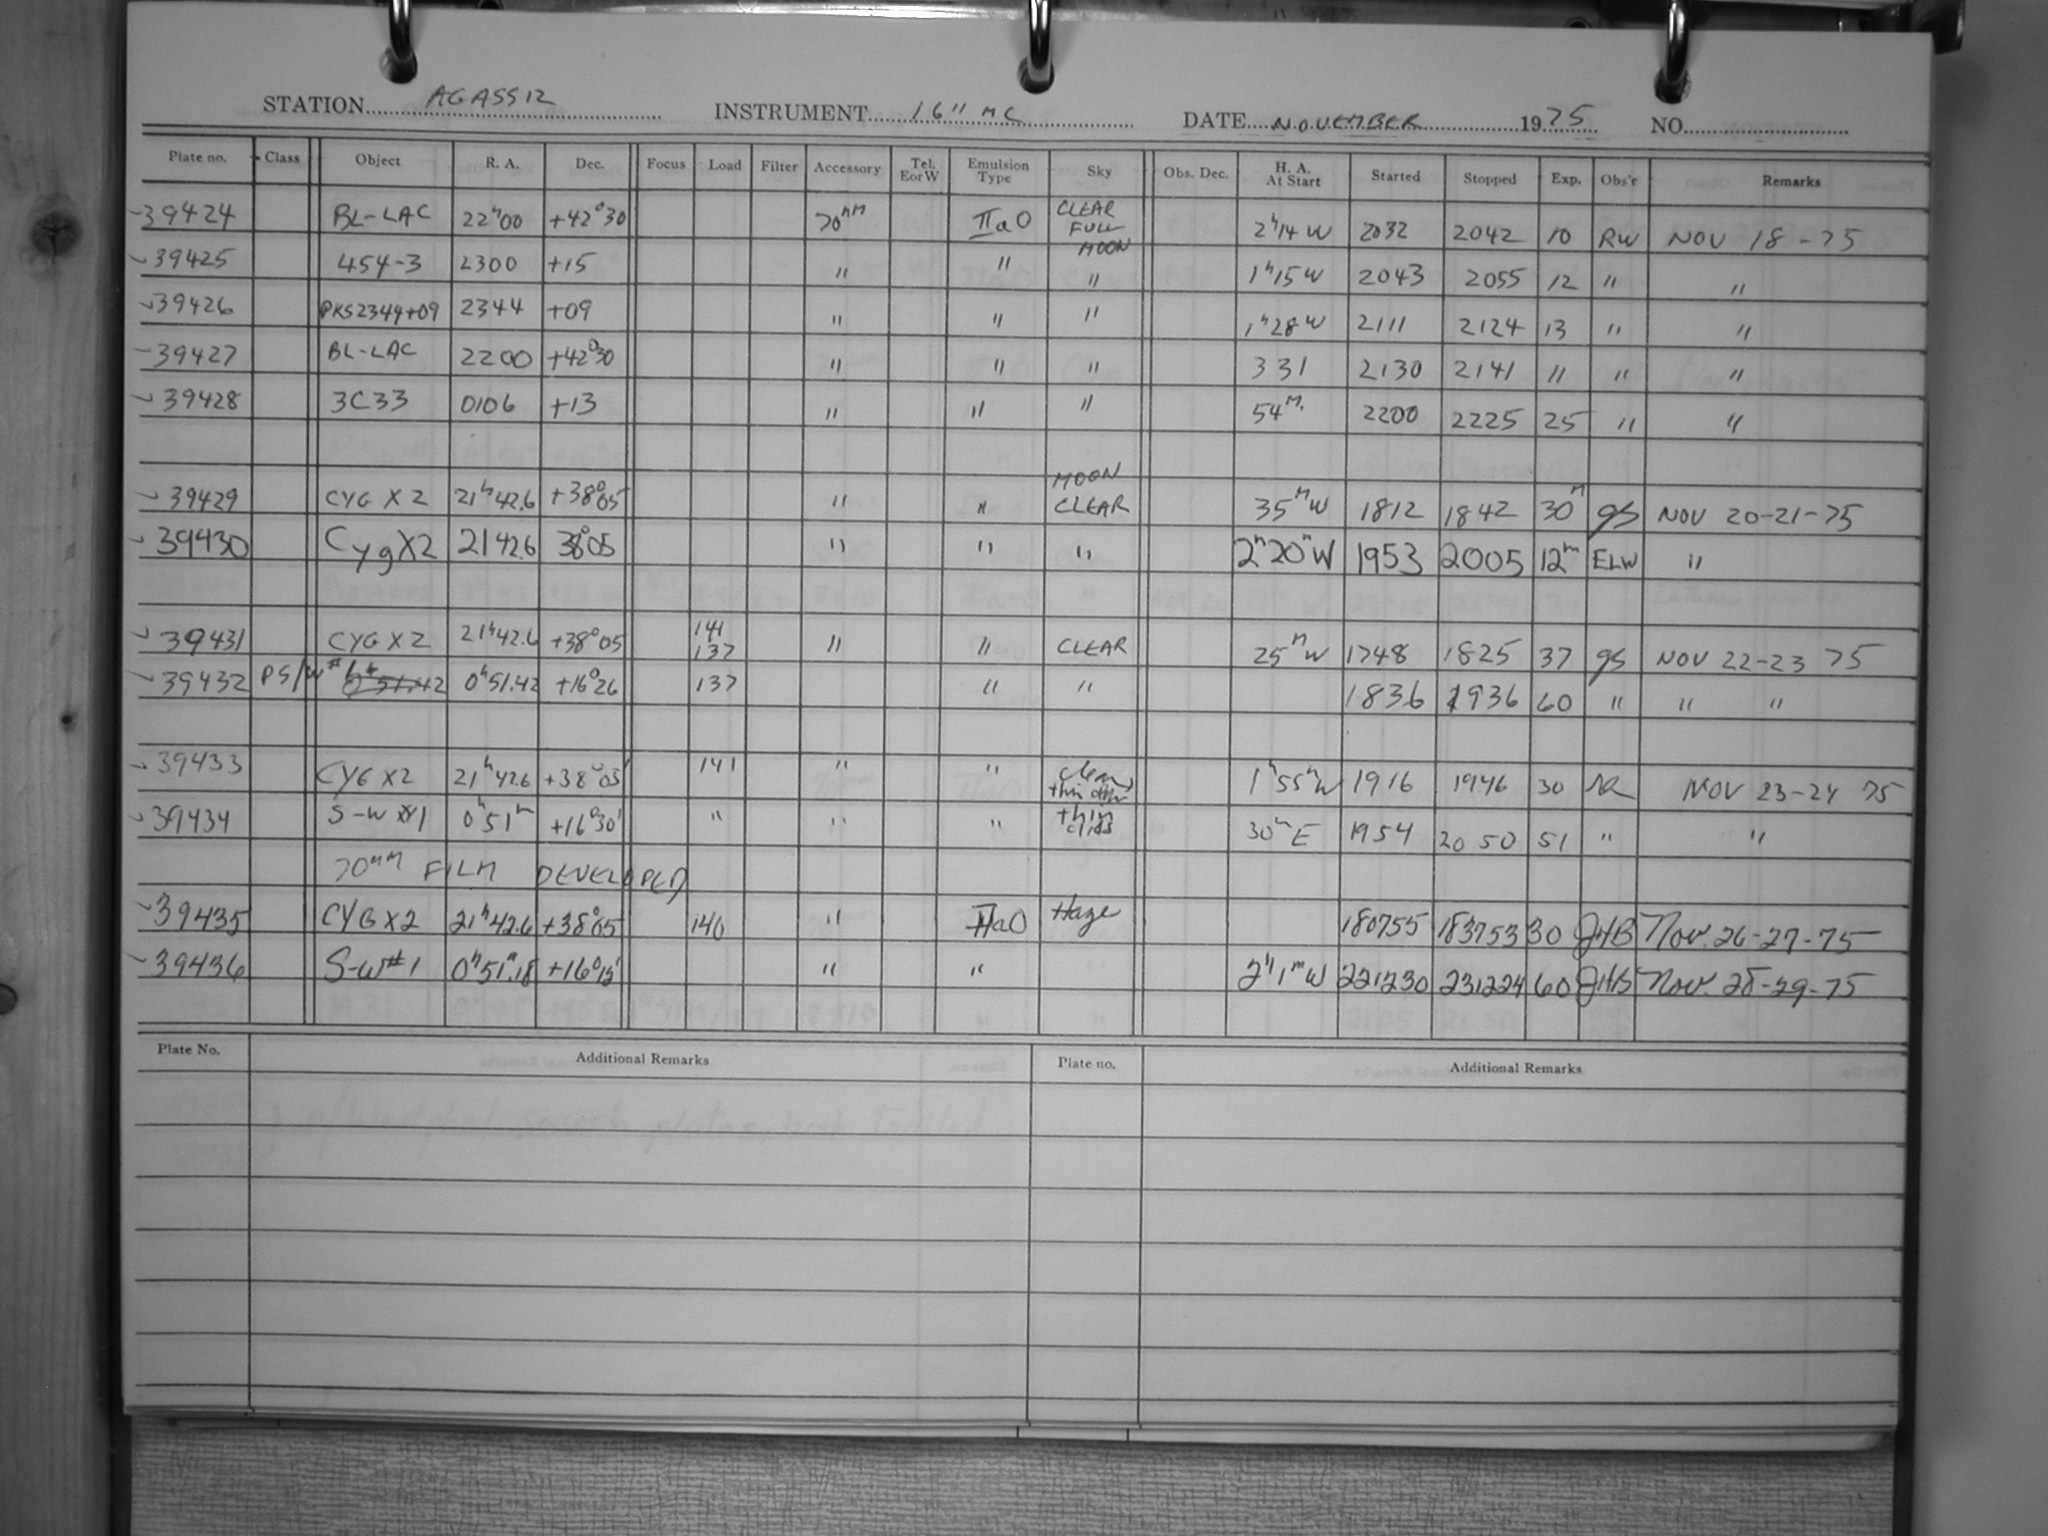 STATION AGASSIZ INSTRUMENT 16" MC DATE NOVEMBER 1975 NO.
Plate no. Class Object R. A. Dec. Focus Load Filter Accessory Tel. E or W Emulsion Type Sky Obs. Dec. H. A. At Start Started Stopped Exp. Obs'r Remarks
39424 BL-LAC 22ʰ00 +42°30 70ᵐᵐ IIaO CLEAR FULL MOON 2ʰ14 W 2032 2042 10 RW NOV 18-75
39425 454-3 2300 +15 " " " 1ʰ15 W 2043 2055 12 " "
39426 PKS2344+09 2344 +09 " " " 1ʰ28 W 2111 2124 13 " "
39427 BL-LAC 2200 +42°30 " " " 331 2130 2141 11 " "
39428 3C33 0106 +13 " " " 54ᴹ· 2200 2225 25 " "
39429 CYG X2 21ʰ42.6 +38°05 " " MOON CLEAR 35ᴹ W 1812 1842 30ᴹ gs NOV 20-21-75
39430 CygX2 2142.6 38°05 " " " 2ʰ20ᵐW 1953 2005 12ᵐ ELW "
39431 CYG X2 21ʰ42.6 +38°05 141 137 " " CLEAR 25ᴹ W 1748 1825 37 gs NOV 22-23 75
39432 PS/W# 0ʰ51.42 +16°26 137 " " 1836 1936 60 " " "
39433 CYG X2 21ʰ42.6 +38°03' 141 " " clear, thin 1ʰ55ᵐW 1916 1946 30 NOV 23-24 75
39434 S-W #1 0ʰ51ᵐ +16°30' " " " thin clds 30ᵐ E 1954 2050 51 " "
70ᵐᵐ FILM DEVELOPED
39435 CYG X2 21ʰ42.6 +38°05 140 " IIaO Haze 180755 183753 30 JHB Nov. 26-27-75
39436 S-W#1 0ʰ51ᵐ.18 +16°15' " " 2ʰ1ᵐW 221230 231224 60 JHB Nov. 28-29-75
Plate No. Additional Remarks Plate no. Additional Remarks